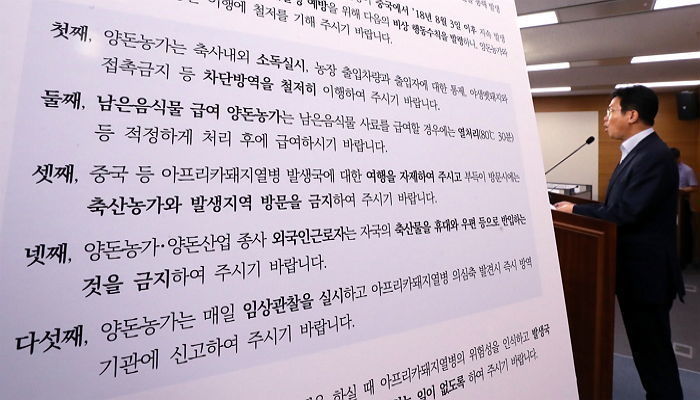 예방을 위해 다음의 비상 행동수칙을 발령하니, 양돈농가와
중국에서 '18년 8월 3일 이후
이행에 철저를 기해 주시기 바랍니다.
첫째, 양돈농가는 축사내외 소독실시, 농장 출입차량과 출입자에 대한 통제, 야생멧돼지와
접촉금지 등 차단방역을 철저히 이행하여 주시기 바랍니다.
둘째, 남은음식물 급여 양돈농가는 남은음식물 사료를 급여할 경우에는 열처리(80℃ 30분)
등 적정하게 처리 후에 급여하시기 바랍니다.
셋째, 중국 등 아프리카돼지열병 발생국에 대한 여행을 자제하여 주시고 부득이 방문시에는
축산농가와 발생지역 방문을 금지하여 주시기 바랍니다.
넷째, 양돈농가·양돈산업 종사 외국인근로자는 자국의 축산물을 휴대와 우편 등으로 반입하는
것을 금지하여 주시기 바랍니다.
다섯째, 양돈농가는 매일 임상관찰을 실시하고 아프리카돼지열병 의심축 발견시 즉시 방역
기관에 신고하여 주시기 바랍니다.
하실 때 아프리카돼지열병의 위험성을 인식하고 발생국
일이 없도록 하여 주시기 바랍니다.